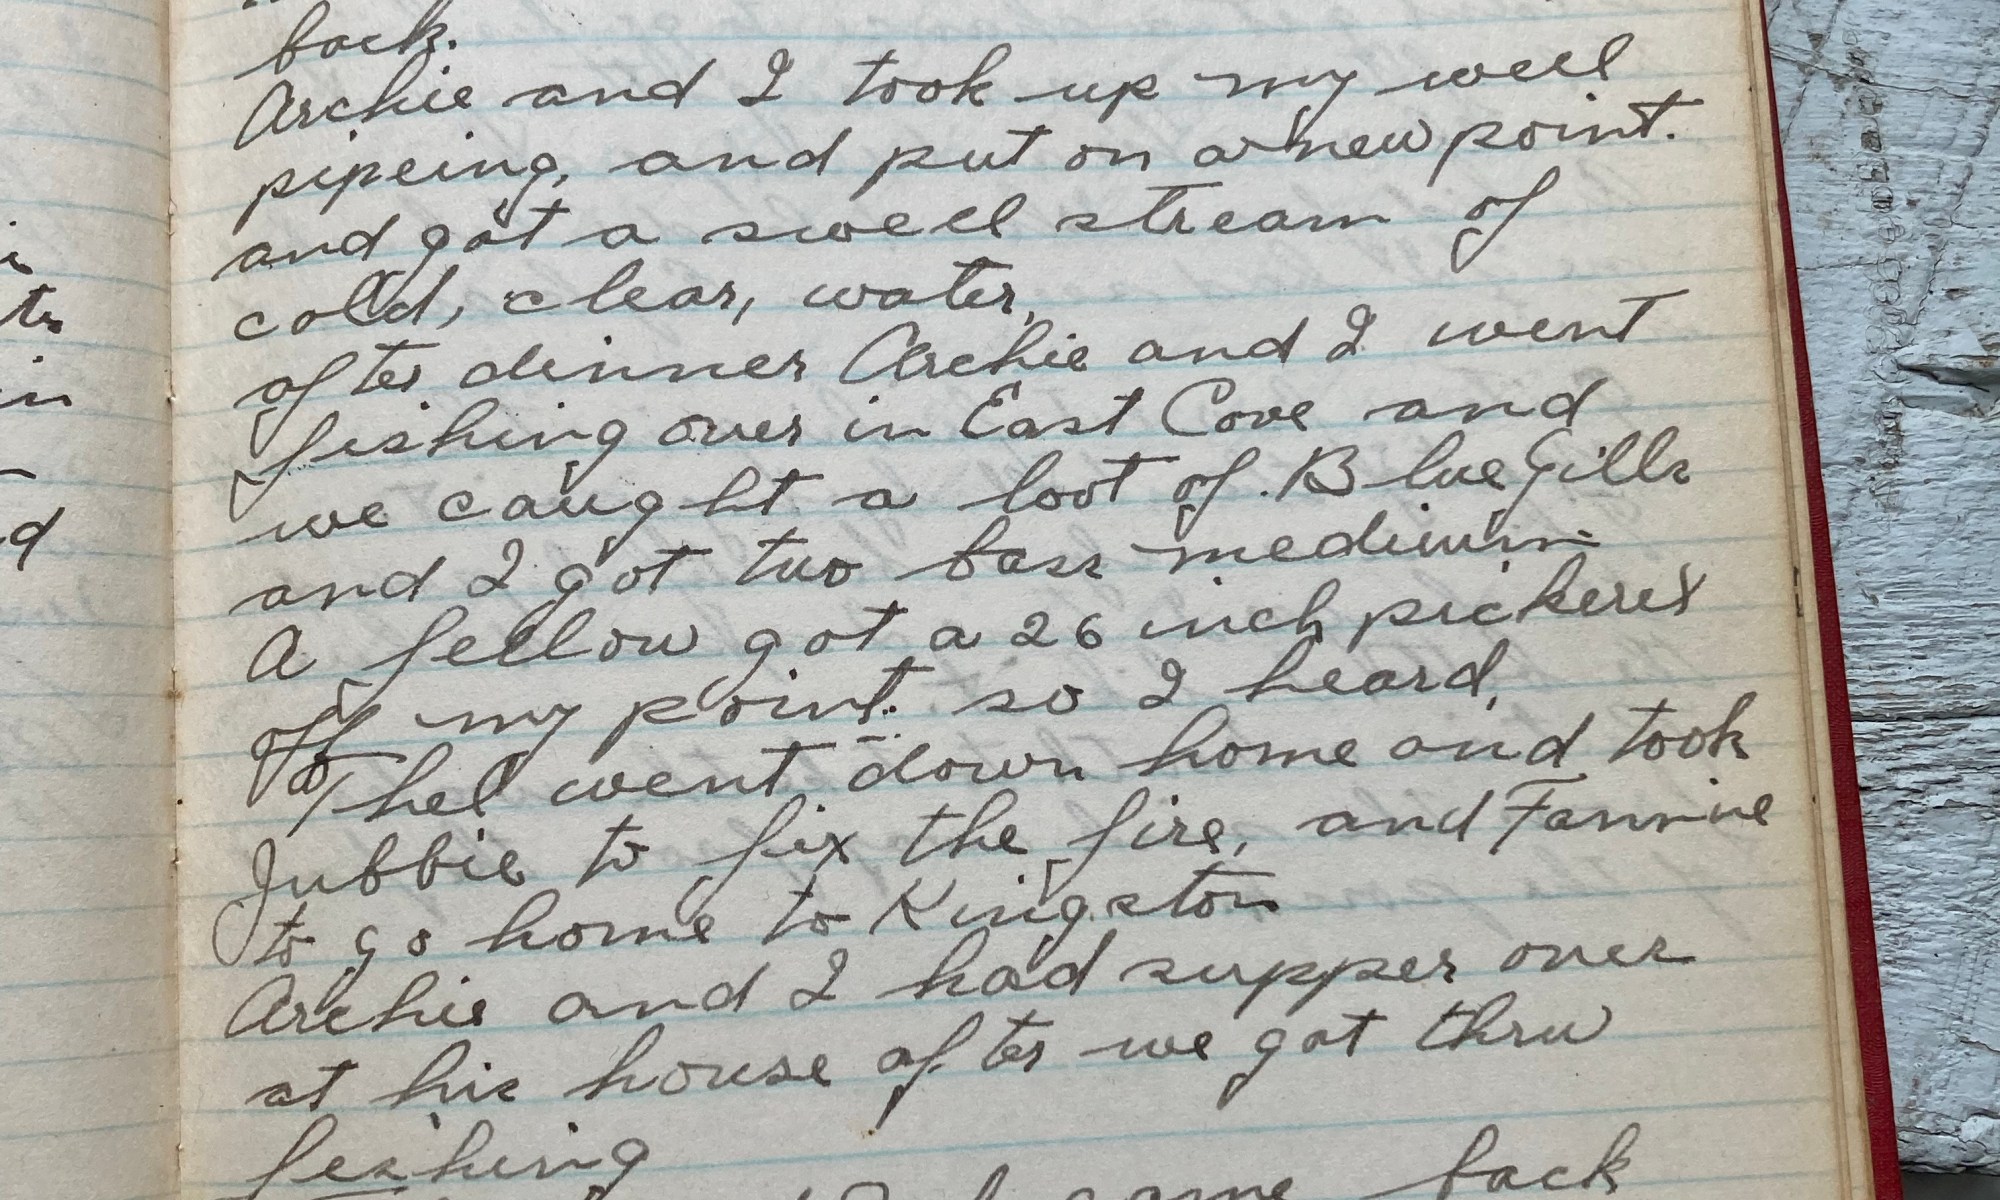 back.
Archie and I took up my well
pipeing, and put on a new point.
and got a swell stream of
cold, clear, water,
after dinner Archie and I went
fishing over in East Cove and
we caught a loot of Blue Gills
and I got two bass medium
A fellow got a 26 inch pickerel
off my point. so I heard,
Thel went down home and took
Jubbie to fix the fire, and Fannie
to go home to Kingston
Archie and I had supper over
at his house after we got thru
fishing
came back